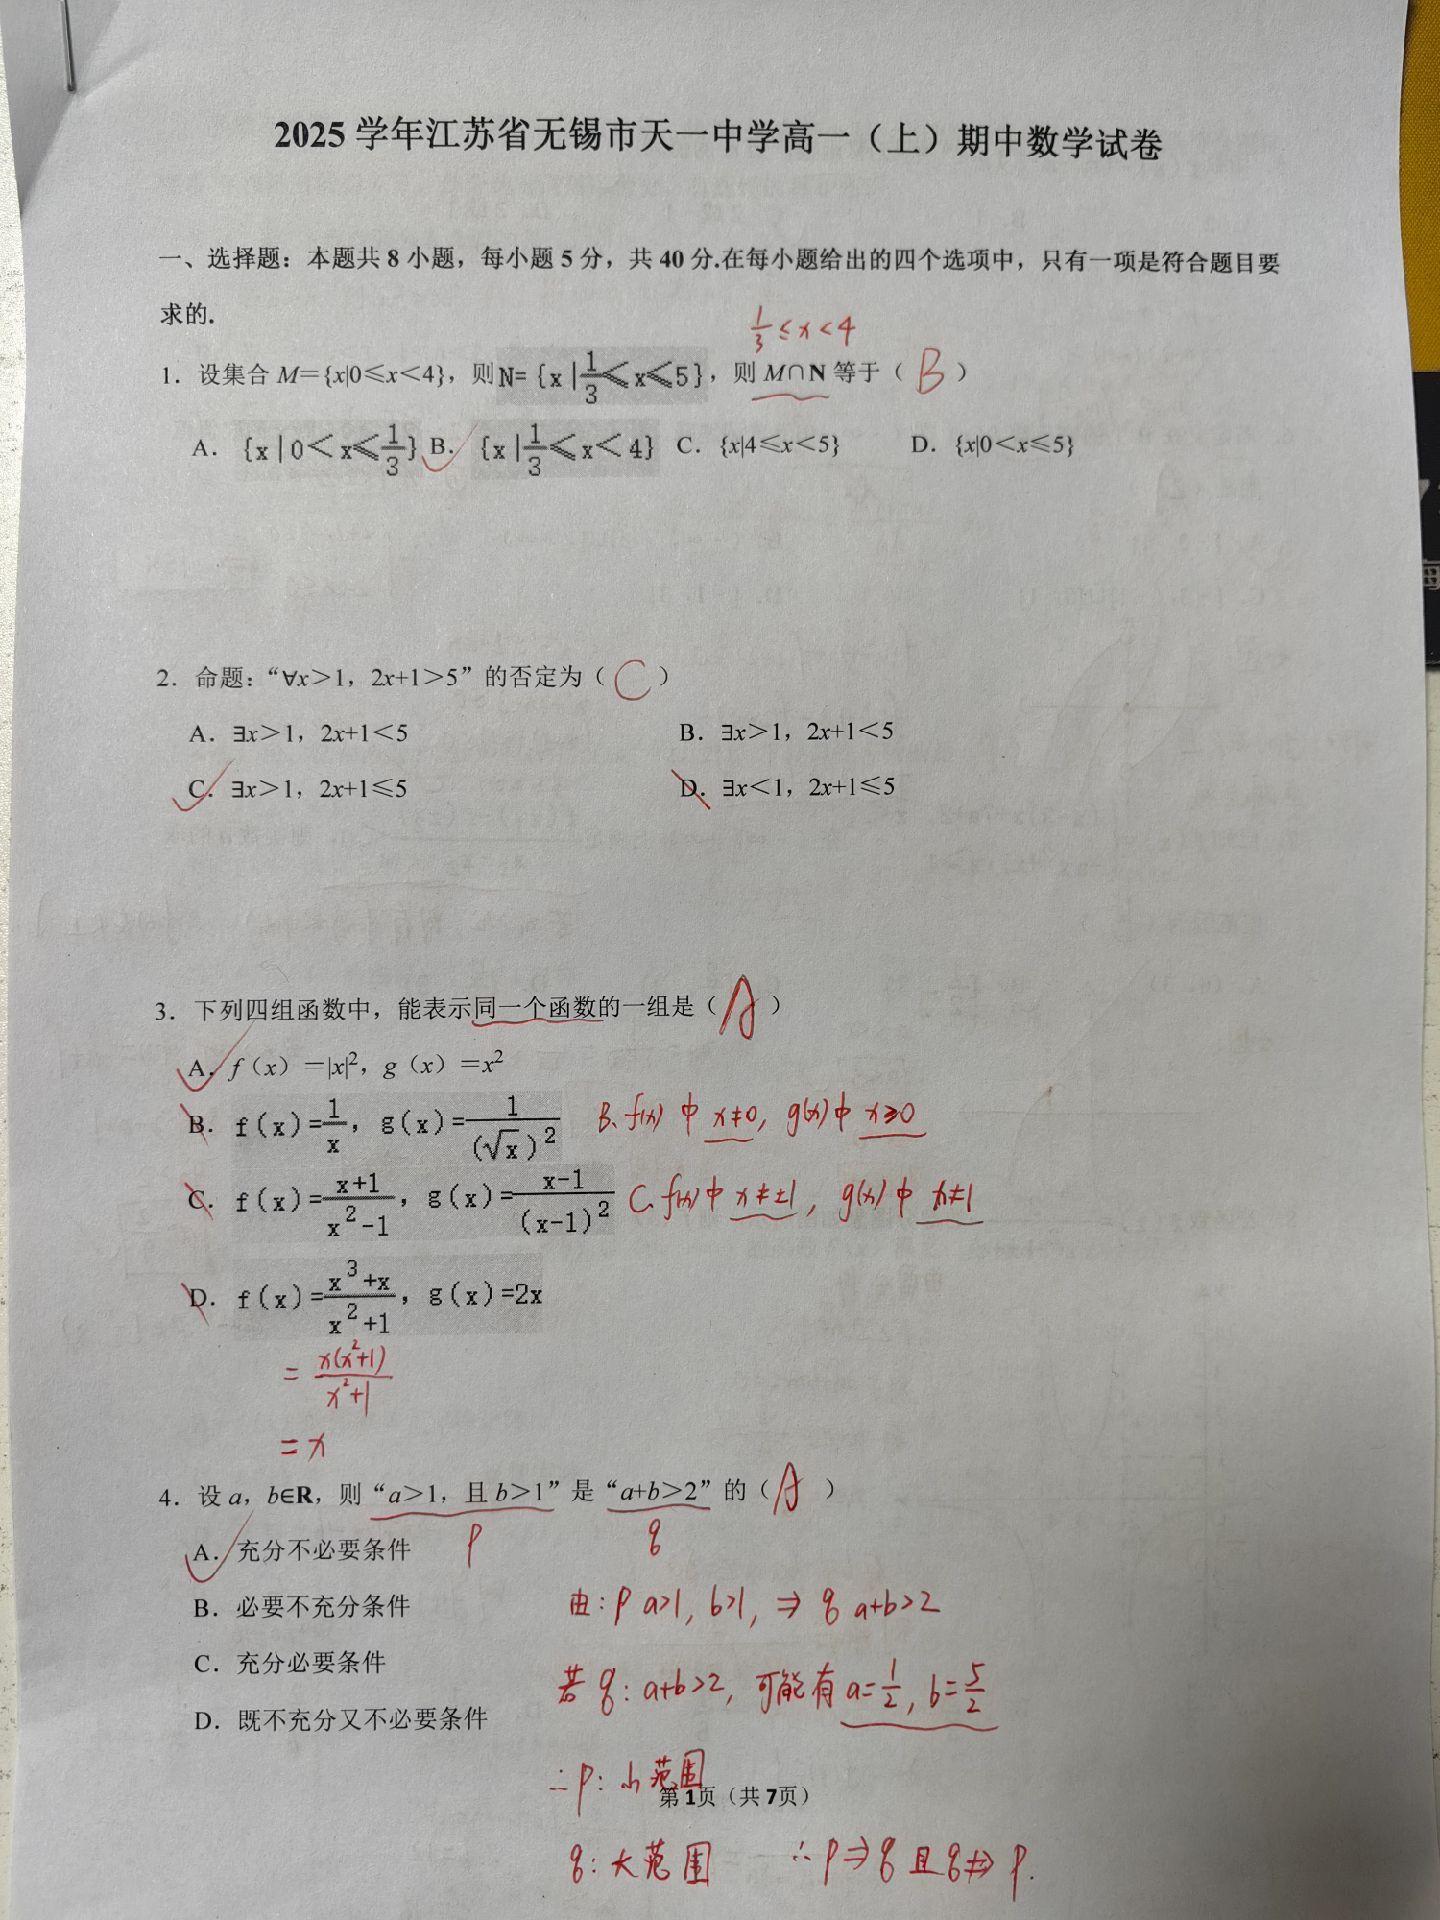 2025学年江苏省无锡市天一中学高一（上）期中数学试卷
一、选择题：本题共8小题，每小题5分，共40分.在每小题给出的四个选项中，只有一项是符合题目要
求的.
1/3≤x<4
1．设集合 M={x|0≤x<4}，则N={x|1/3≤x≤5}，则 M∩N 等于（ B ）
A．{x|0<x≤1/3} B．{x|1/3≤x<4} C．{x|4≤x<5} D．{x|0<x≤5}
2．命题：“∀x>1，2x+1>5”的否定为（ C ）
A．∃x>1，2x+1<5 B．∃x>1，2x+1<5
C．∃x>1，2x+1≤5 D．∃x<1，2x+1≤5
3．下列四组函数中，能表示同一个函数的一组是（ A ）
A．f（x）=|x|²，g（x）=x²
B．f(x)=1/x，g(x)=1/(√x)² B、f(x)中x≠0，g(x)中x≥0
C．f(x)=(x+1)/(x²-1)，g(x)=(x-1)/(x-1)² C、f(x)中x≠±1，g(x)中x≠1
D．f(x)=(x³+x)/(x²+1)，g(x)=2x
=x(x²+1)/(x²+1)
=x
4．设 a，b∈R，则“a>1，且 b>1”是“a+b>2”的（ A ）
A．充分不必要条件 p q
B．必要不充分条件 由：p a>1，b>1，⇒ q a+b>2
C．充分必要条件
若 q：a+b>2，可能有 a=1/2，b=5/2
D．既不充分又不必要条件
∴p：小范围
第1页（共7页）
q：大范围 ∴p⇒q 且 q⇏p.